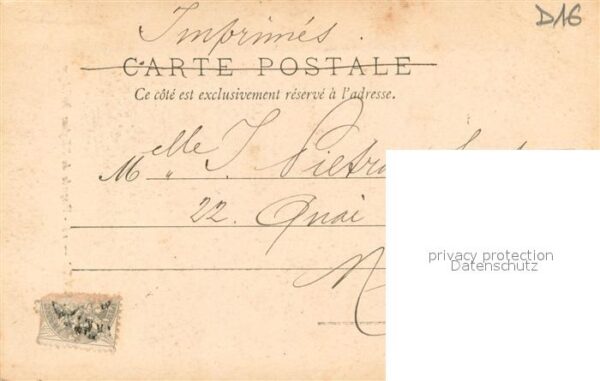 Imprimés.
D16
CARTE POSTALE
Ce côté est exclusivement réservé à l'adresse.
Melle J.
22. Quai
privacy protection
Datenschutz